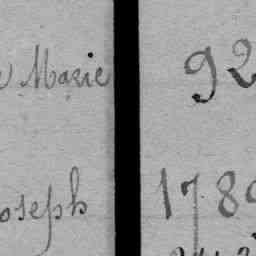 Marie 92
oseph 178